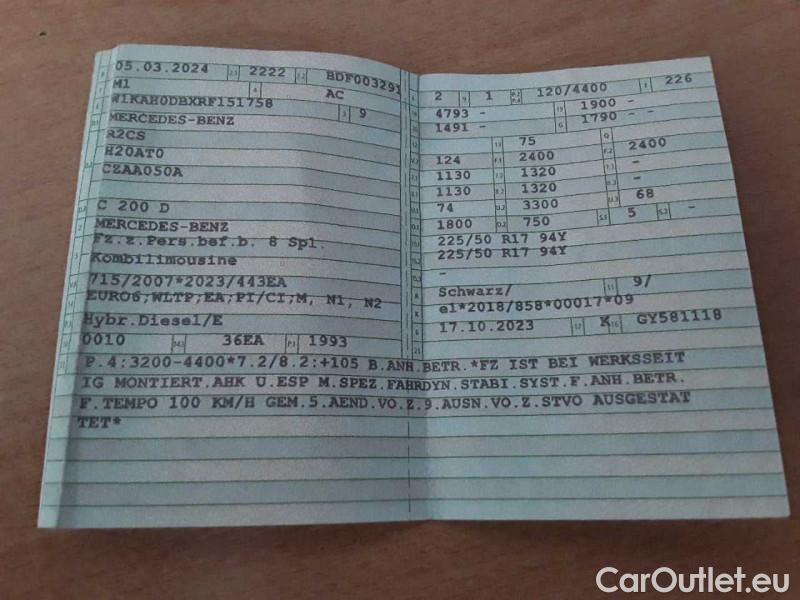 05.03.2024 2222 BDF003291
M1 AC
W1KAH0DBXRF151758 9
MERCEDES-BENZ
R2CS
H20AT0
CZAA050A
C 200 D
MERCEDES-BENZ
Fz.z.Pers.bef.b. 8 Spl.
Kombilimousine
715/2007*2023/443EA
EURO6;WLTP;EA;PI/CI;M, N1, N2
Hybr.Diesel/E
0010 36EA 1993
2 1 120/4400 226
4793 - 1900 -
1491 - 1790 - -
75
124 2400 2400
1130 1320 -
1130 1320 -
74 3300 68
1800 750 5 -
225/50 R17 94Y
225/50 R17 94Y
-
Schwarz/ 9/
e1*2018/858*00017*09
17.10.2023 K GY581118
P.4:3200-4400*7.2/8.2:+105 B.ANH.BETR.*FZ IST BEI WERKSSEIT
IG MONTIERT.AHK U.ESP M.SPEZ.FAHRDYN.STABI.SYST.F.ANH.BETR.
F.TEMPO 100 KM/H GEM.5.AEND.VO.Z.9.AUSN.VO.Z.STVO AUSGESTAT
TET*
CarOutlet.eu